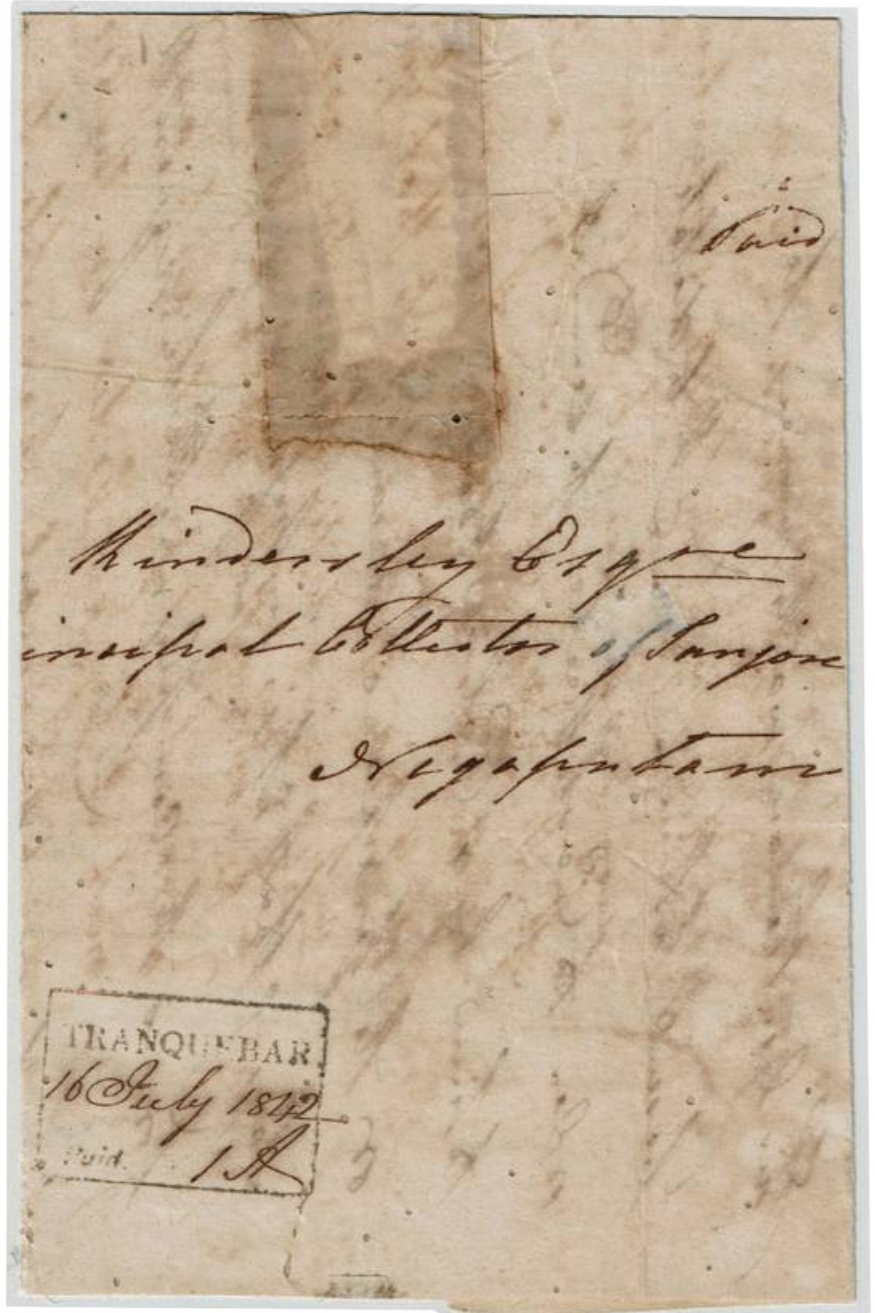 Paid
Kindersley Esqre
incipal Collector of Tanjore
Negapatam
TRANQUEBAR
16 July 1842
Paid. 1 A